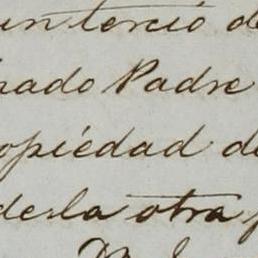 un tercio de
nado Padre
opiédad de
de la otra